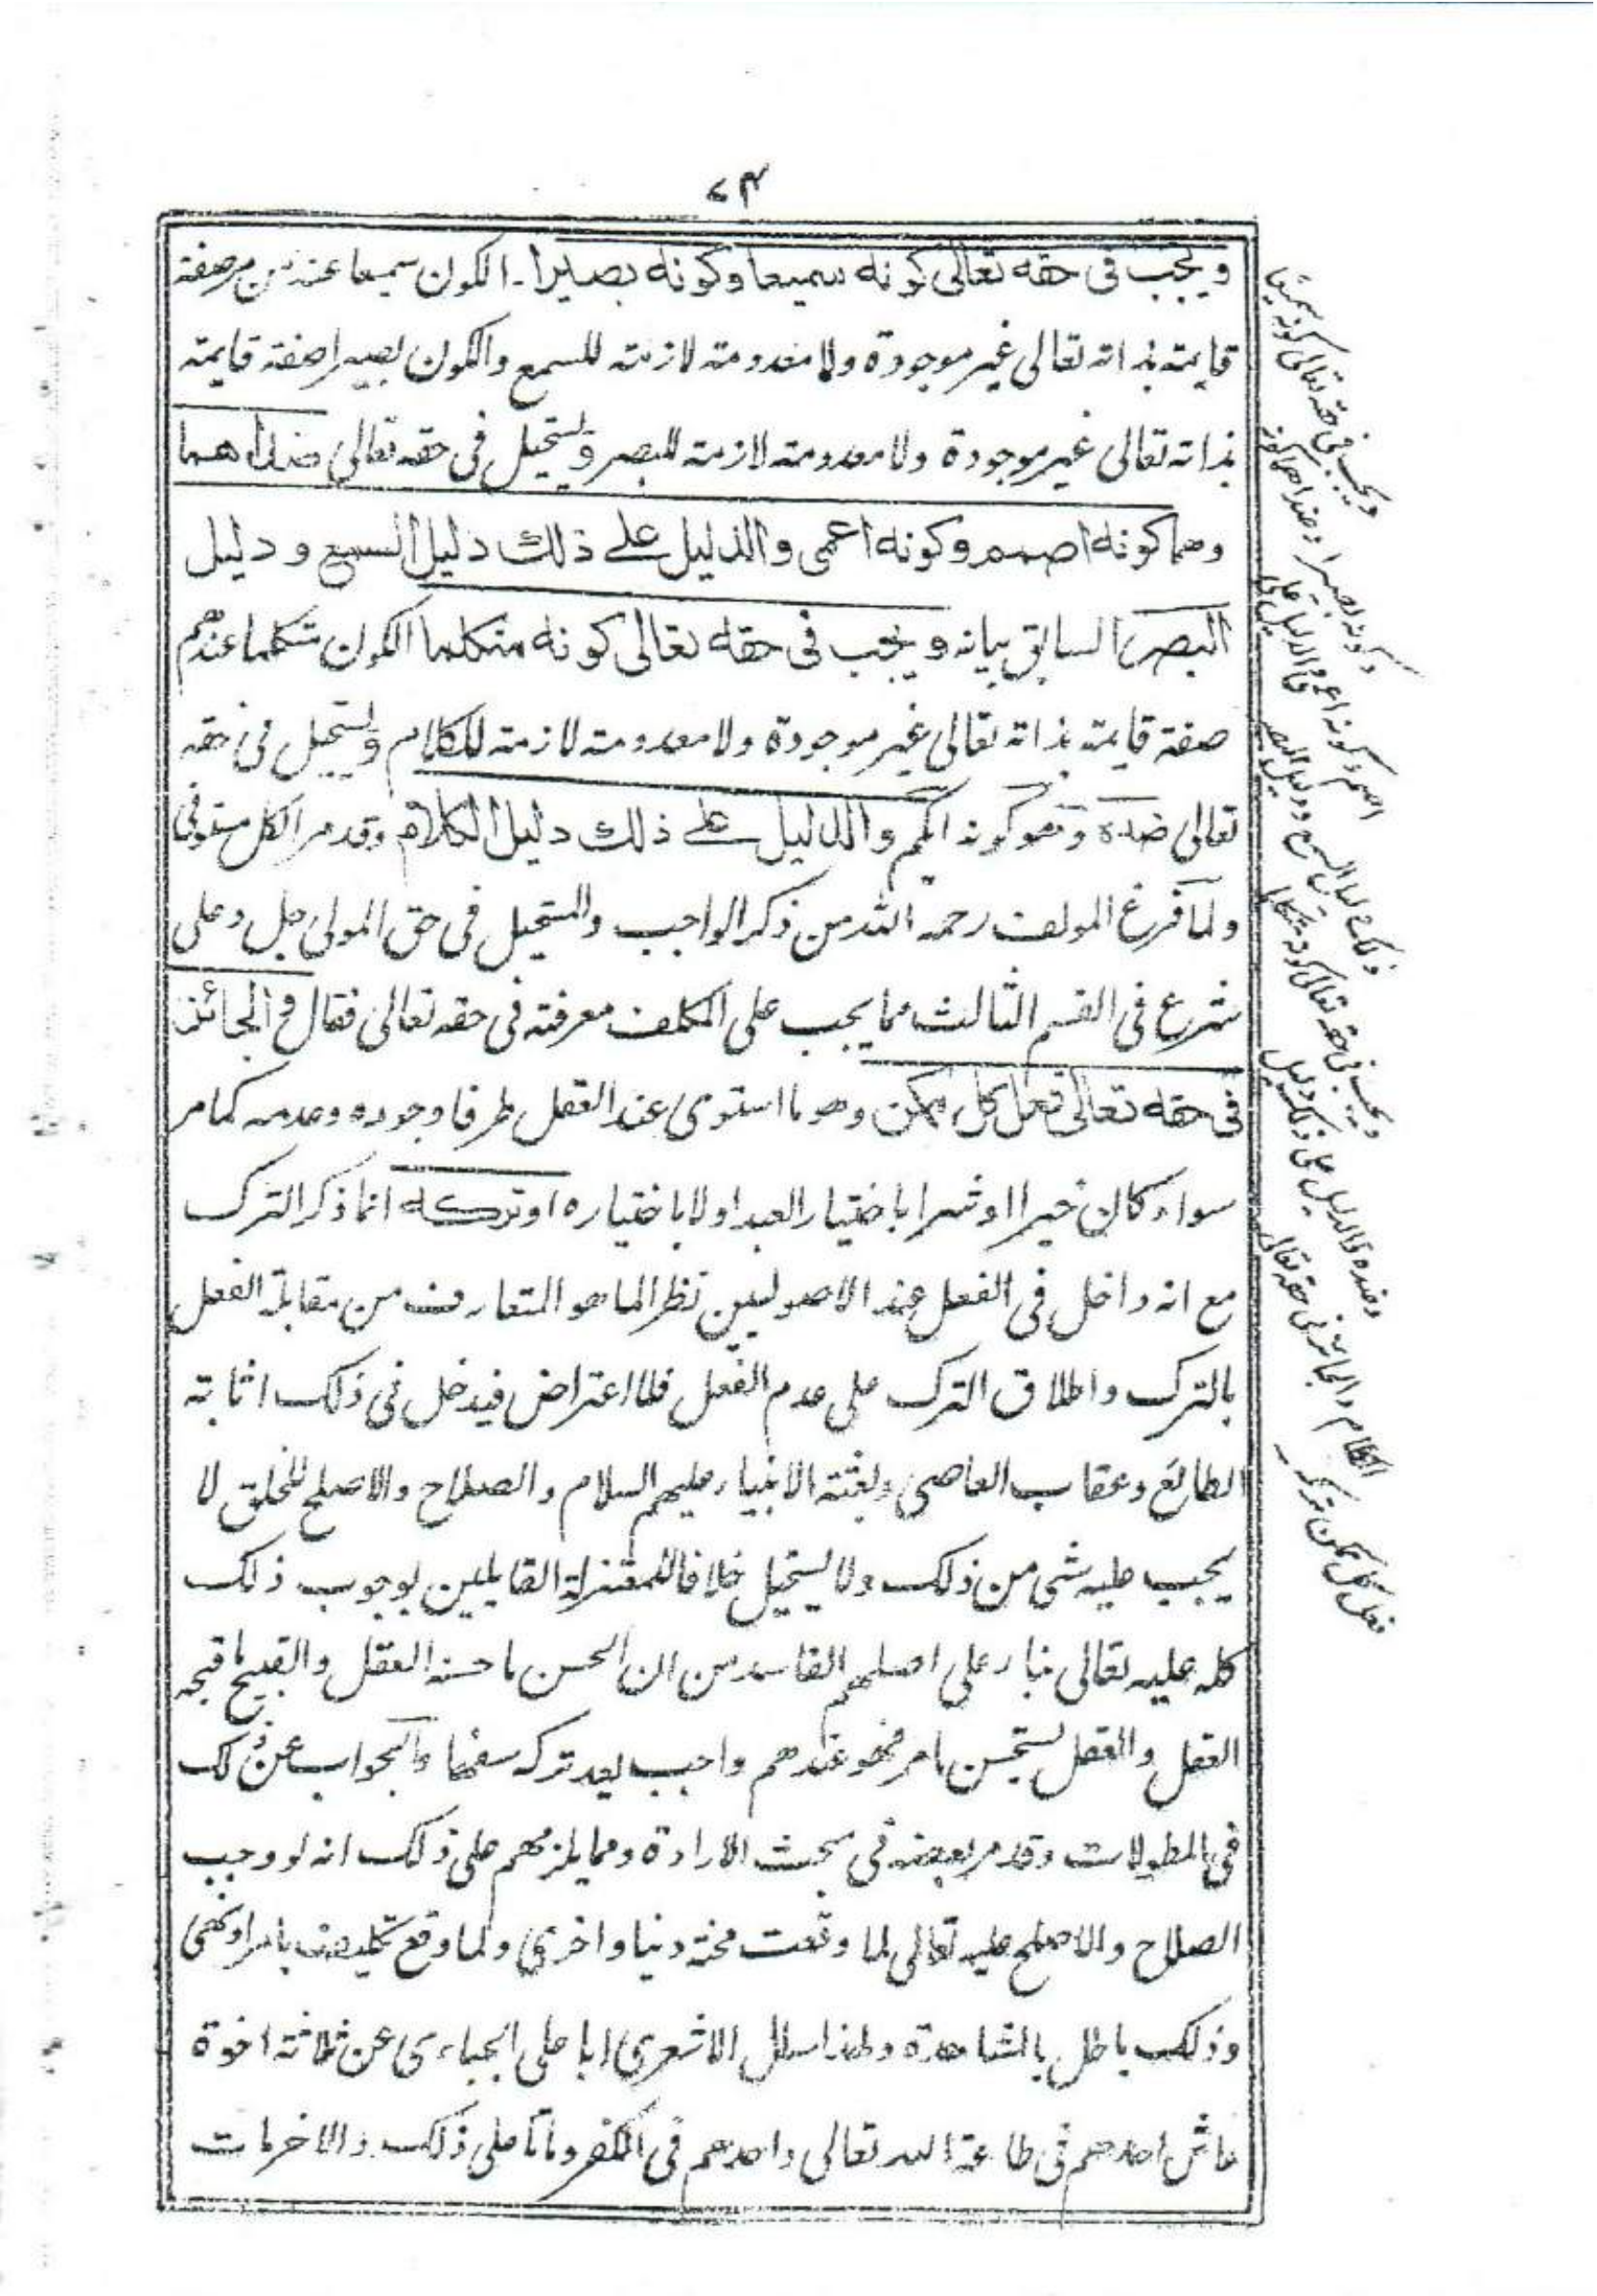 ٧٤
ويجب فى حقه تعالى كونه سميعا وكونه بصيرا۔ الكون سميعا عند من صفته
قايمته بذاته تعالى غير موجودة ولا معدومته لازمته للسمع والكون بصيرا صفته قايمته
بذاته تعالى غير موجودة ولا معدومته لازمته للبصر ويستحيل فى حقه تعالى ضداهما
وهما كونه اصم وكونه اعمى والدليل على ذلك دليل السمع و دليل
البصر السابق بيانه ويجب فى حقه تعالى كونه متكلما الكون متكلما عندهم
صفته قايمته بذاته تعالى غير موجودة ولا معدومته لازمته للكلام ويستحيل فى حقه
تعالى ضده وهو كونه ابكم والدليل على ذلك دليل الكلام وقد مر الكل مستوفى
ولما فرغ المولف رحمه الله من ذكر الواجب والمستحيل فى حق المولى جل وعلى
شرع فى القسم الثالث مما يجب على المكلف معرفته فى حقه تعالى فقال والجائز
فى حقه تعالى فعل كل ممكن وهو ما استوى عند العقل طرفا وجوده وعدمه كما مر
سواء كان خيرا او شرا باختيار العبد اولا باختياره او تركه انما ذكر الترك
مع انه داخل فى الفعل عند الاصوليين نظرا لما هو المتعارف من مقابلة الفعل
بالترك واطلاق الترك على عدم الفعل فلا اعتراض فيدخل فى ذلك اثابته
الطائع وعقاب العاصى وبعثته الانبياء عليهم السلام والصلاح والاصلح للخلق لا
يجب عليه شى من ذلك ولا يستحيل خلافا للمعتزلة القايلين بوجوب ذلك
كله عليه تعالى بناء على اصلهم الفاسد من ان الحسن ما حسنه العقل والقبيح ما قبحه
العقل والعقل يستحسن ما مر فهو عندهم واجب يعد تركه سفها والجواب عن ذلك
فى المطولات وقد مر بعضه فى بحث الارادة ومما يلزمهم على ذلك انه لو وجب
الصلاح والاصلح عليه تعالى لما وقعت محنة دنيا واخرى ولما وقع تكليف بامر او نهى
وذلك باطل بالمشاهدة ولهذا سال الاشعرى ابا على الجباءى عن ثلاثة اخوة
عاش احدهم فى طاعة الله تعالى واحدهم فى الكفر وماتا على ذلك والاخر مات
ويجب فى حقه تعالى كونه سميعا
وكونه بصيرا وضداهما كونه
اصم وكونه اعمى والدليل على
ذلك دليل السمع ودليل البصر
ويجب فى حقه تعالى كونه متكلما
وضده والدليل على ذلك دليل
الكلام والجائز فى حقه تعالى
فعل كل ممكن وتركه